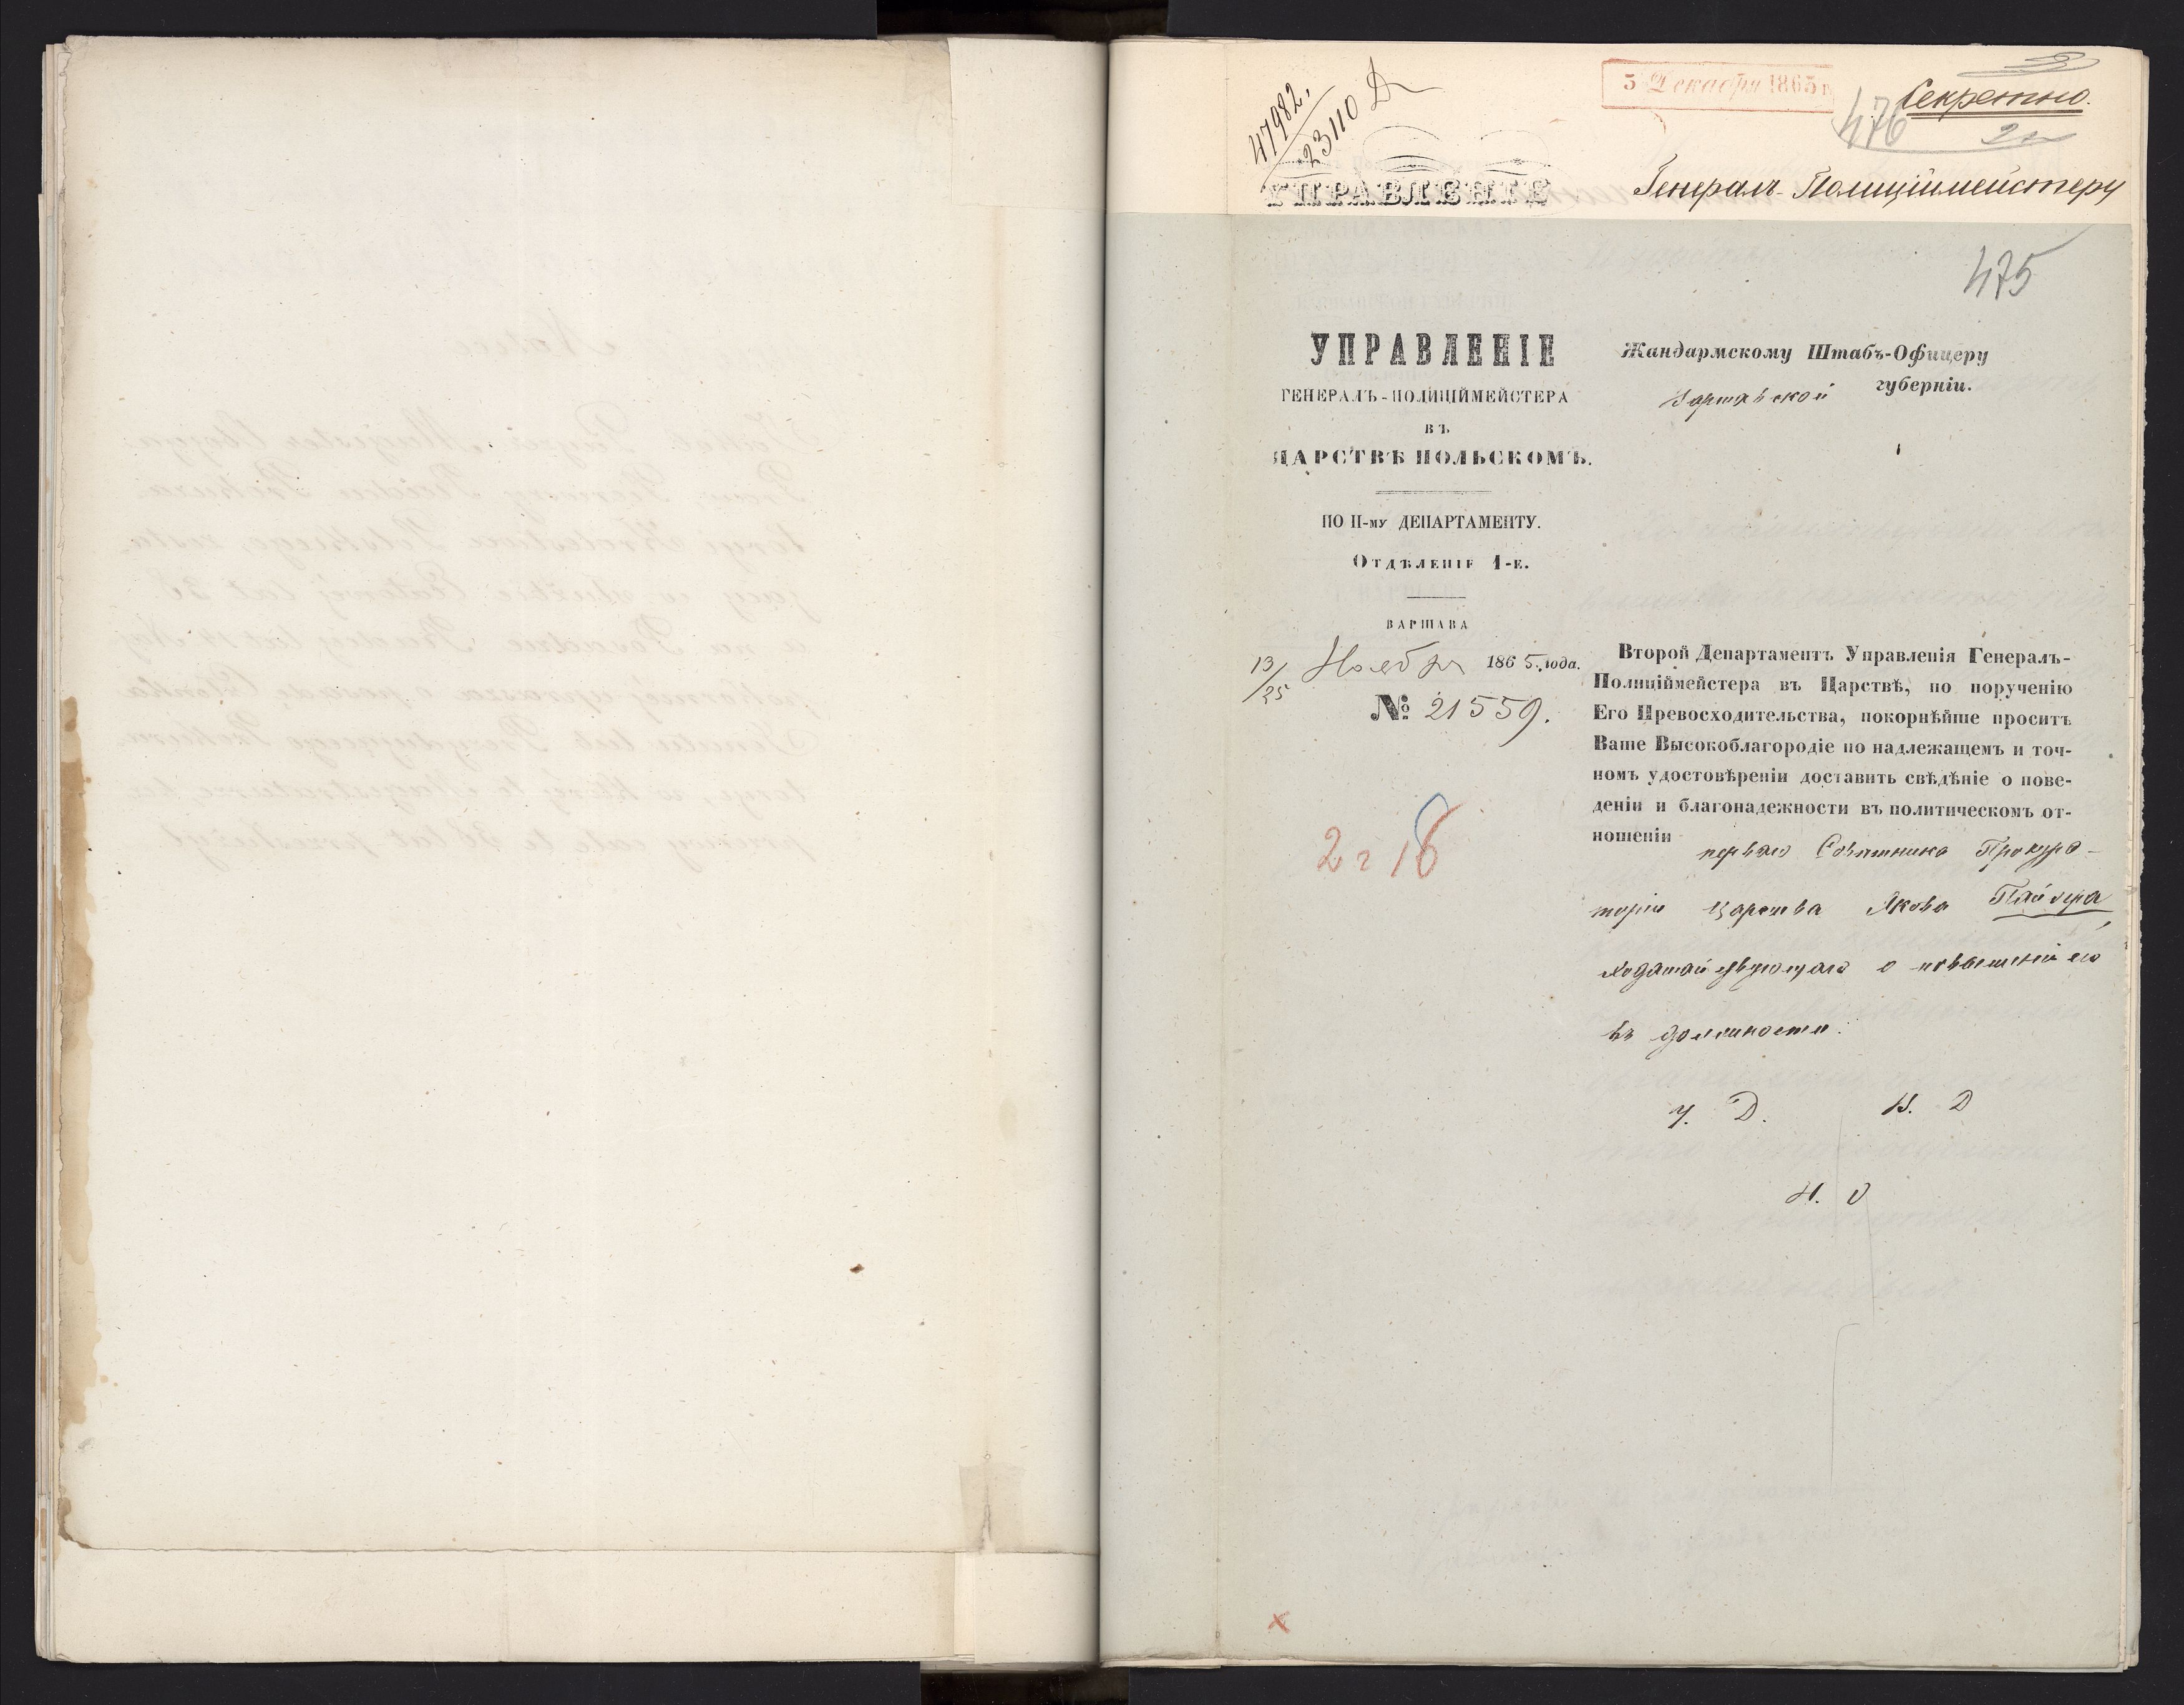 47982.
23110
5 Декабря 1865 г
Секретно.
476
УПРАВЛЕНІЕ
Генералъ-Полиціймейстеру
475
УПРАВЛЕНІЕ
ГЕНЕРАЛЪ-ПОЛИЦІЙМЕЙСТЕРА
ВЪ
ЦАРСТВѢ ПОЛЬСКОМЪ.
ПО II-му ДЕПАРТАМЕНТУ.
Отдѣленіе 1-е.
ВАРШАВА
13/25 Ноября 1865 года.
№ 21559.
Жандармскому Штабъ-Офицеру
Варшавской губерніи.
Второй Департаментъ Управленія Генералъ-
Полиціймейстера въ Царствѣ, по порученію
Его Превосходительства, покорнѣйше проситъ
Ваше Высокоблагородіе по надлежащемъ и точ-
номъ удостовѣреніи доставить свѣдѣніе о пове-
деніи и благонадежности въ политическомъ от-
ношеніи перваго Совѣтника Прокура-
торіи Царства Якова Пайзера
ходатайствующаго о повышеніи его
въ должности.
У. Д. Н. Д
Н. О